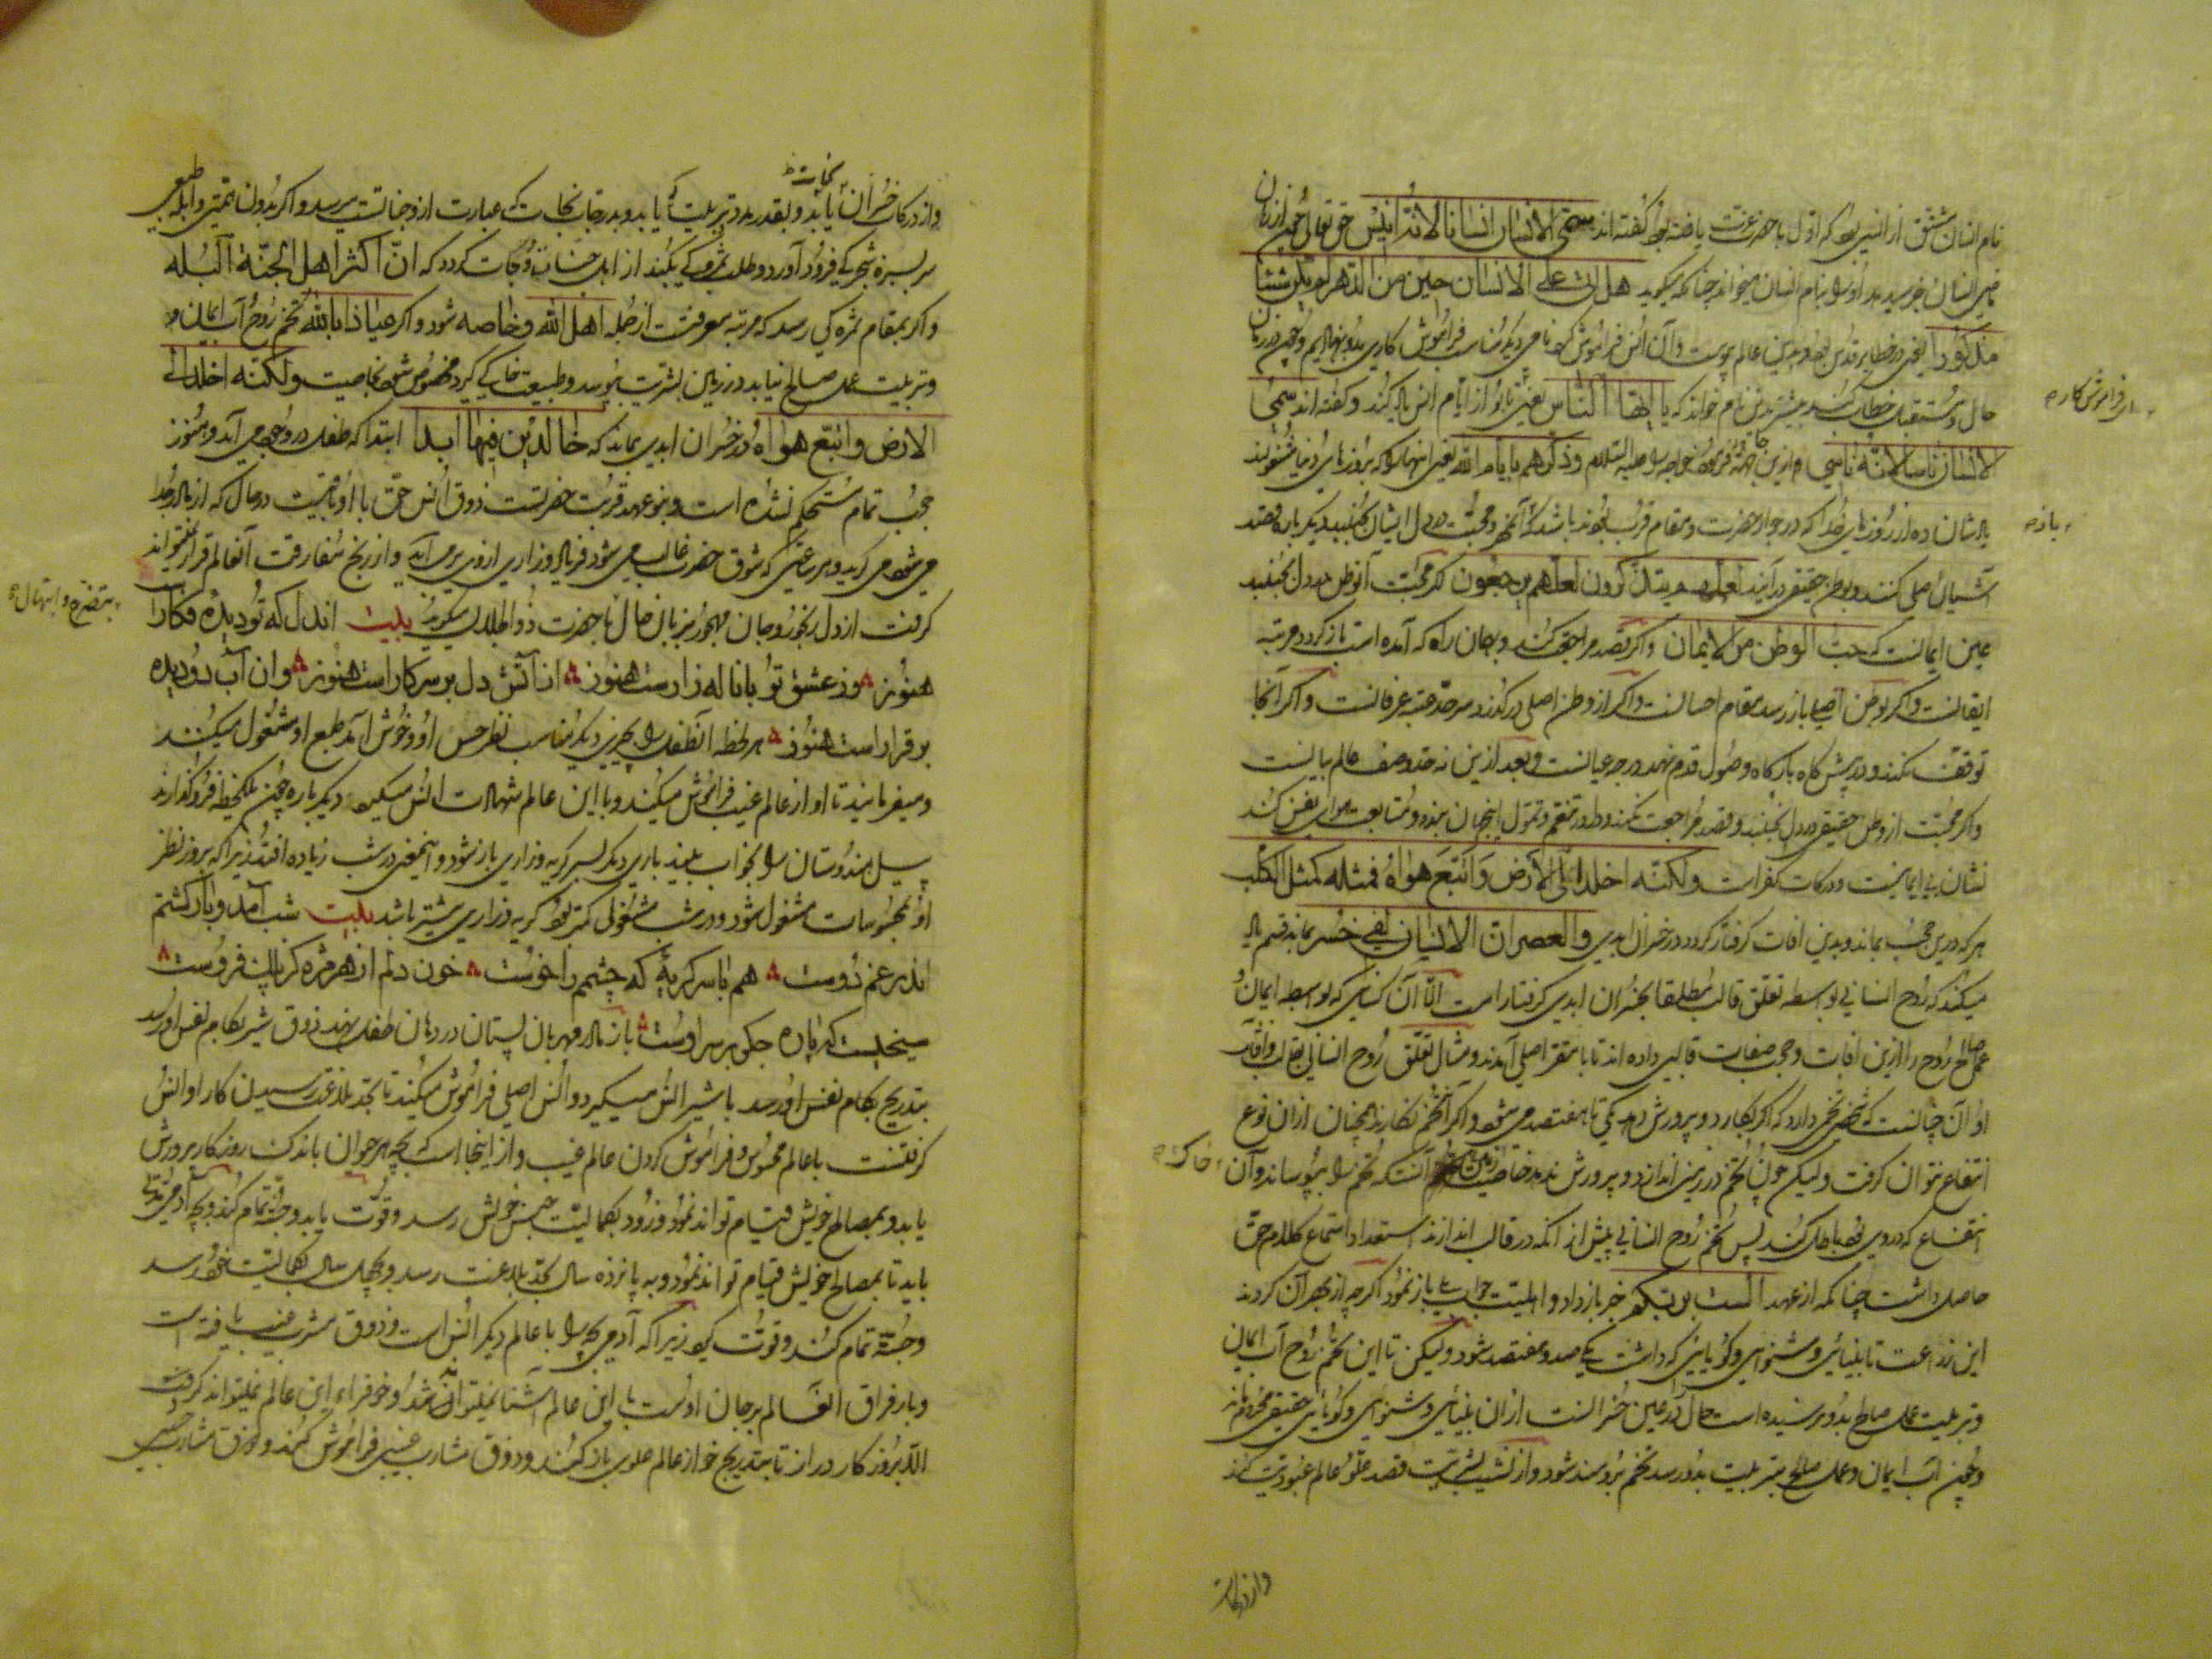 نام انسان مشتق از انس بود که اول با حضرت عزت یافته بود گفته اند سمی الانسان انسانا لانه انیس حق تعالی چون از زمان
ماضی انسان خبر میدهد او را بنام انسان میخواند چنانکه میگوید هل اتی علی الانسان حین من الدهر لم یکن شیئا
مذکورا یعنی در حظایر قدس بود و بدین عالم نپیوست و آن انس فراموش نکرد نامی دیگر مناسب فراموش کاری بدو نهادیم و چون در زمان
حال و مستقبل خطاب کند بیشتر بدین نام خواند که یا ایها الناس یعنی تا بو از ایام انس یاد کند و گفته اند سمی
الانسان ناسیا لانه ناسی و ازین جهة فرمود خواجه را علیه السلام وذکرهم بایام الله یعنی اینها را که بروزهای دنیا مشغولند
یادشان ده از روزهای خدا که در جوار حضرت و مقام قرب بودند باشد که آن مهر و محبت در دل ایشان بجنبد دیگر باره قصد
آشیان اصلی کنند و بوطن حقیقی در آیند لعلهم یتذکرون لعلهم یرجعون اگر محبت آن وطن در دل بجنبد
عین ایمانست که حب الوطن من الایمان و اگر قصد مراجعت کند و بهمان راه که آمده است باز گردد مرتبه
ایقانست و اگر بوطن اصلی باز رسد مقام احسانست و اگر از وطن اصلی در گذرد سرحد مرتبه عرفانست و اگر آنجا
توقف نکند و در پیشگاه بارگاه وصول قدم نهد درجه عیانست و بعد ازین نه حد وصف عالم بیانست
و اگر محبت از وطن حقیقی در دل نجنبد و قصد مراجعت نکند و دل در تنعم و تمول اینجهان بندد و متابعت هوای نفس کند
نشان بی ایمانیست و درکات کفرات ولکنه اخلد الی الارض واتبع هواه فمثله کمثل الکلب
هر که درین حجب بماند و بدین آفات گرفتار گردد در خسران ابدی والعصر ان الانسان لفی خسر بماند قسم یاد
میکند که روح انسانی بواسطه تعلق قالب مطلقا بخسران ابدی گرفتار است الا آن کسانی که بواسطه ایمان و
عمل صالح روح را ازین آفات و حجب صفات قالبی داده اند تا بامقر اصلی آمدند و مثال تعلق روح انسانی بقالب و آفات
او آن چنانست که شخصی تخمی دارد که اگر بکارد و پرورش دهد یکی تا هفتصد می شود و اگر آن تخم نکارند همچنان از آن نوع
انتفاع نتوان گرفت ولیکن چون تخم در زمین اندازد و پرورش ندهد خاصیت زمین آنست که تخم را بپوساند و آن
انتفاع که در وی بود باطل کند پس تخم روح انسانی پیش از آنکه در قالب اندازند استعداد استماع کلام حق
حاصل داشت چنانکه از عهد الست بربکم خبر باز داد و اهلیت جواب بلی باز نمود اگرچه از بهر آن کردند
این زراعت تا بینائی و شنوائی و گویائی که داشت یکی صد و هفتصد شود ولیکن تا این تخم روح آب ایمان
و تربیت عمل صالح بدو نرسیده است حال در عین خسرانست از آن بینائی و شنوائی و گویائی حقیقی محروم ماند
و چون آب ایمان و عمل صالح بتربیت بدو رسد تخم برومند شود و از نشیب بشریت قصد علو عالم عبودیت کند
فراموش کاره
باز
خاک
وازدرکات
نجات
واز درکات خسران یابد و بقدر مدد تربیت که یابد و بدرجات نجات که عبارت از وجنانست میرسد و اگر بدون تمنی و ابله طبعی
سر بسبزه شجرکی فرود آورد و طلب ثمرگی نکند از اهل جنات و درجات گردد که ان اکثر اهل الجنة البله
و اگر بمقام ثمرگی رسد که مرتبه معرفتست از جمله اهل الله و خاصه شود و اگر عیاذا بالله تخم روح آب ایمان
و تربیت عمل صالح نیابد در زمین بشریت بپوسد و طبیعت خاکی گیرد مخصوص شود بخاصیت ولکنه اخلد الی
الارض واتبع هواه و در خسران ابدی بماند که خالدین فیها ابدا ابتدا که طفل در وجود می آید و هنوز
حجب تمام مستحکم نشده است و نو عهد قربت حضرتست ذوق انس حق با او باقیست در حال که از مادر جدا
می شود می گرید و هر ساعتی که شوق حضرت غالب می شود فریاد و زاری از وی بر می آید و از رنج مفارقت آن عالم قرار نمیتواند
بتضرع و ابتهال
گرفت از دل رنجور و جان مهجور بزبان حال با حضرت ذو الجلال میگوید بیت آن دل که تو دیدۀ فکارا
هنوز وز عشق تو با ناله زارست هنوز از آتش دل بر سر کار است هنوز وان آب دو دیده
بر قرار است هنوز هر لحظه آنطفل را بچیزی دیگر مناسب نظر حس او و خوش آمد طبع او مشغول میکنند
و میفریبانند تا او از عالم غیب فراموش میکند و با این عالم شهادت انس میگیرد دیگر باره چون یک لحظه فرو گذارند
پیل هندوستان را بخواب بیند باری دیگر بسر گریه و زاری باز شود و اینمعنی در شب زیاده افتد زیرا که بروز نظر
او بمحسوسات مشغول شود و در شب مشغولی کمتر بود گریه و زاری بیشتر باشد بیت شب آمد و باز گشتم
اندر غم دوست هم با سر گریۀ که چشمم را خوست خون دلم از هر مژه کز پلک فروست
سیخیست که پاره جگر بر سر اوست باز مادر مهربان پستان در دهان طفل نهد ذوق شیر بکام نفس او رسد
بتدریج بکام نفس او رسد با شیر انس میگیرد و انس اصلی فراموش میکند تا بحد بلاغت رسیدن کار او انس
گرفتنست با عالم محسوس و فراموش کردن عالم غیب و از اینجا است که بچه هر حیوان باندک روزگار پرورش
یابد و بمصالح خویش قیام تواند نمود و زود بکمالیت جنس خویش رسد و قوت یابد و جثه تمام کند و بچه آدمی مدتها
باید تا بمصالح خویش قیام تواند نمود و به پانزده سال بحد بلاغت رسد و بچهل سال بکمالیت خود رسد
و جثه تمام کند و قوت گیرد زیرا که آدمی بچه را با عالم دیگر انس است و ذوق مشرب غیب یافته است
و بار فراق آن عالم بر جان اوست با این عالم آشنا نمیتواند شد و خو فرا این عالم نمیتواند گرفت
الا بروزگار دراز تا بتدریج خو از عالم علوی باز کند و ذوق مشارب غیبی فراموش کند و ذوق مشارب حسی